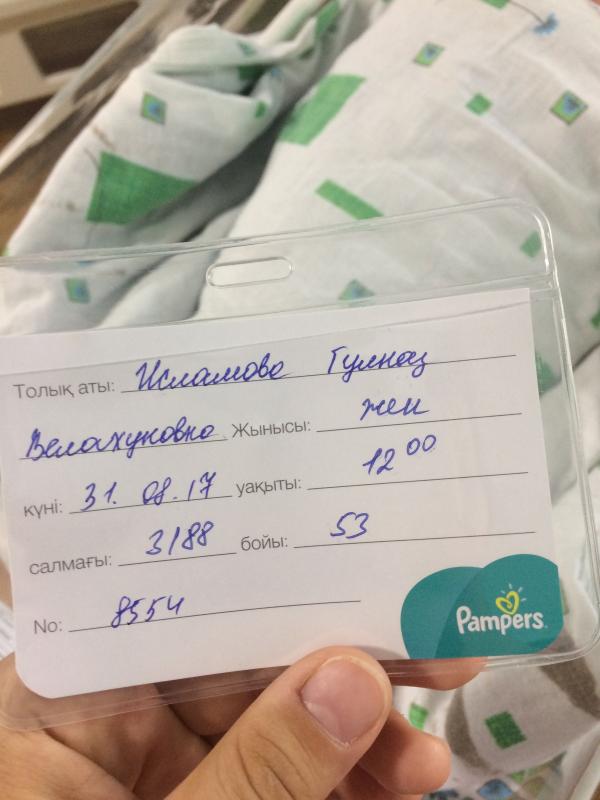 Толық аты: Исламова Гулназ
Велахуновна Жынысы: жен
күні: 31. 08. 17 уақыты: 12 00
салмағы: 3188 бойы: 53
No: 8554
Pampers